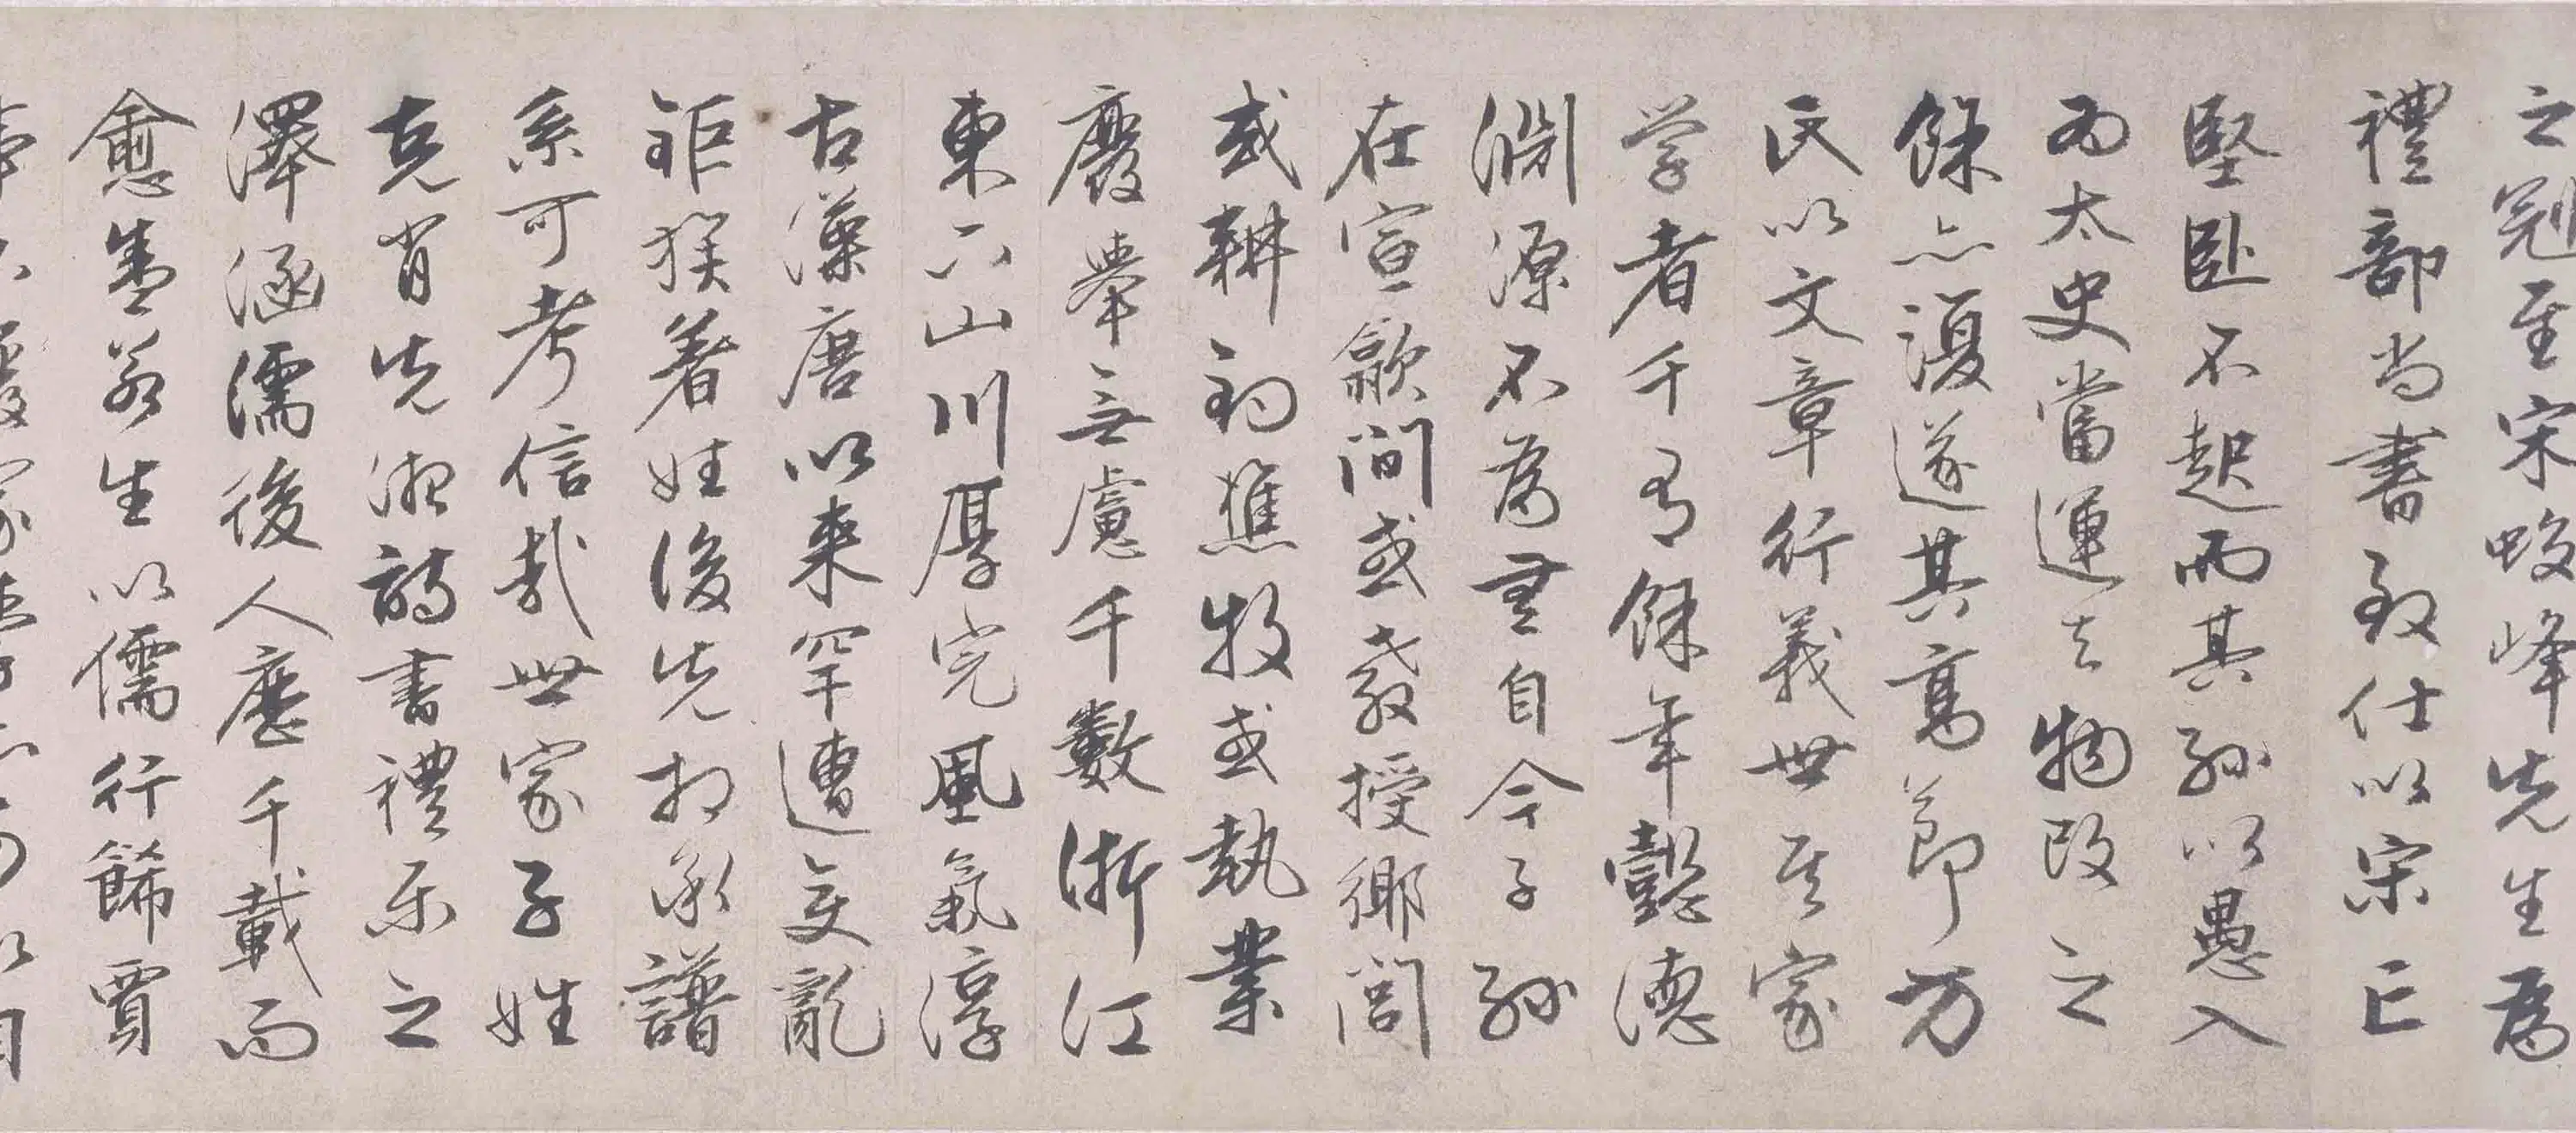 之冠至宋蛟峰先生為
禮部尚書致仕以宋亡
堅臥不起而其孫以愚入
為太史當運去物改之
餘亦復遂其高節方
氏以文章行義世其家
學者千有餘年懿德
淵源不為無自今子孫
在宣歙間或教授鄉閭
或耕釣樵牧或執業
麾舉無慮千數浙江
東六山川厚完風氣淳
古藻唐以來罕遭變亂
鉅族著姓後先相承譜
系可考信哉世家子姓
克肖先澍詩書禮樂之
澤涵濡後人歷千載而
愈盛若生以儒行餙賈